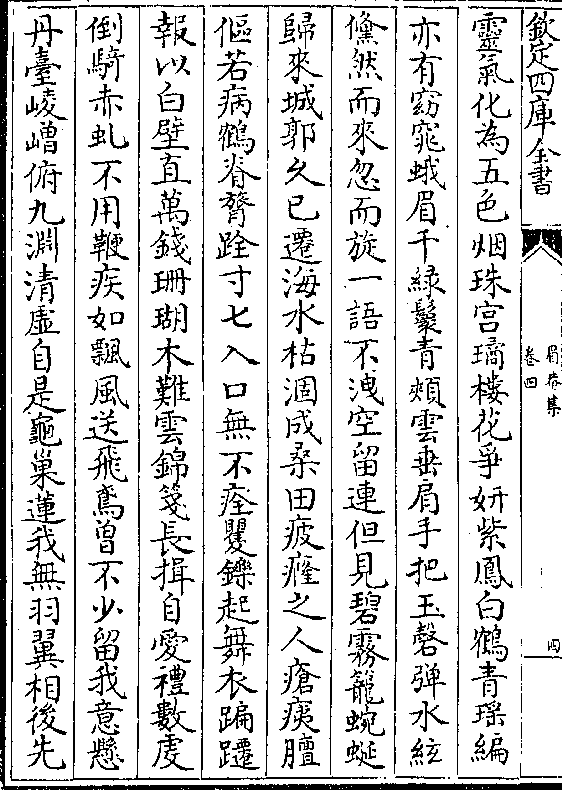 欽定四庫全書
眉菴集
卷四
四
靈氣化為五色烟珠宫璚樓花爭妍紫鳳白鶴青瑶編
亦有窈窕蛾眉千綠鬟青頰雲垂肩手把玉磬彈水絃
儵然而來忽而旋一語不洩空留連但見碧霧籠蜿蜒
歸來城郭久已遷海水枯涸成桑田疲癃之人瘡痍膻
傴若病鶴脊膂跧寸七入口無不痊矍鑠起舞衣蹁躚
報以白璧直萬錢珊瑚木難雲錦箋長揖自愛禮數虔
倒騎赤虬不用鞭疾如飄風送飛鳶曽不少留我意懸
丹臺崚嶒俯九淵清虛自是龜巢蓮我無羽翼相後先